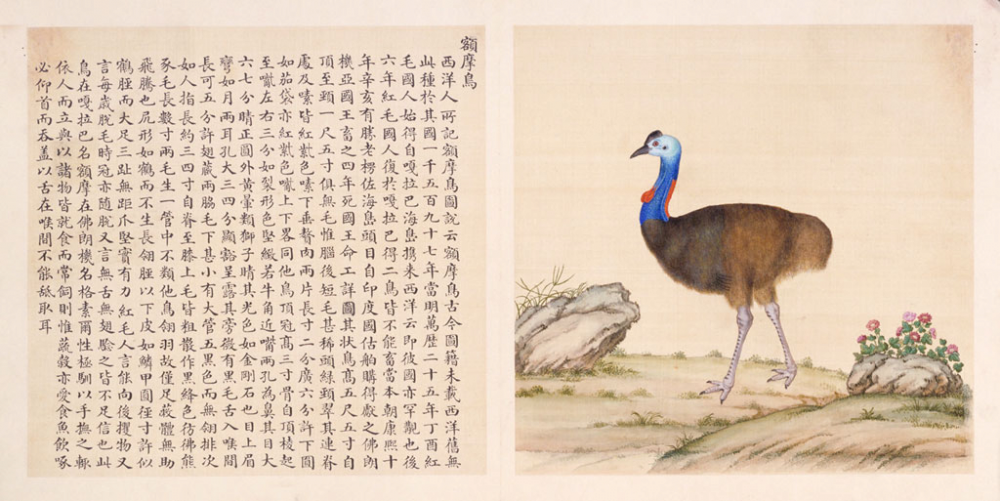 額摩鳥
西洋人所記額摩鳥圖說云額摩鳥古今圖籍未載西洋舊無
此種於其國一千五百九十七年當明萬歷二十五年丁酉紅
毛國人始得自嘎拉巴海島攜來西洋云即彼國亦罕覯也後
六年紅毛國人復於嘎拉巴得二鳥皆不能畜當本朝康熙十
年辛亥有勝老楞佐海島頭目自印度國估舶購得獻之佛朗
機亞國王畜之四年死國王命工詳圖其狀鳥高五尺五寸自
頂至頸一尺五寸俱無毛惟腦後短毛甚稀頭綠頸翠其連脊
處及嗉皆紅紫色嗉下垂贅肉兩片長寸二分廣六分許下圓
如茄袋亦紅紫色喙上下畧同他鳥頂冠高三寸骨自頂稜起
至喙左右三分如裂形色堅緻若牛角近嘴兩孔為鼻其目大
六七分睛正圓外黃暈類獅子睛其光色如金剛石也目上眉
彎如月兩耳孔大三四分顯豁呈露其旁微有黑毛舌入喉間
長可五分許翅藏兩脇毛下甚小有大管五黑色而無翎排次
如人指長約三四寸自脊至膝上毛皆粗散作黑絳色彷彿熊
豕毛長數寸兩毛生一管中不類他鳥翎羽故僅足蔽體無助
飛騰也尻形如鶴而不生長翎脛以下皮如鱗甲圓徑寸許似
鶴脛而大足三趾無距爪堅實有力紅毛人言能向後攫物又
言每歲脫毛時冠亦隨脫又言無舌無翅驗之皆不足信也此
鳥在嘎拉巴名額摩在佛朗機名格素爾性極馴以手撫之輒
依人而立與以諸物皆就食而常飼則惟蒸穀亦愛食魚飲啄
必仰首而吞蓋以舌在喉間不能舐取耳